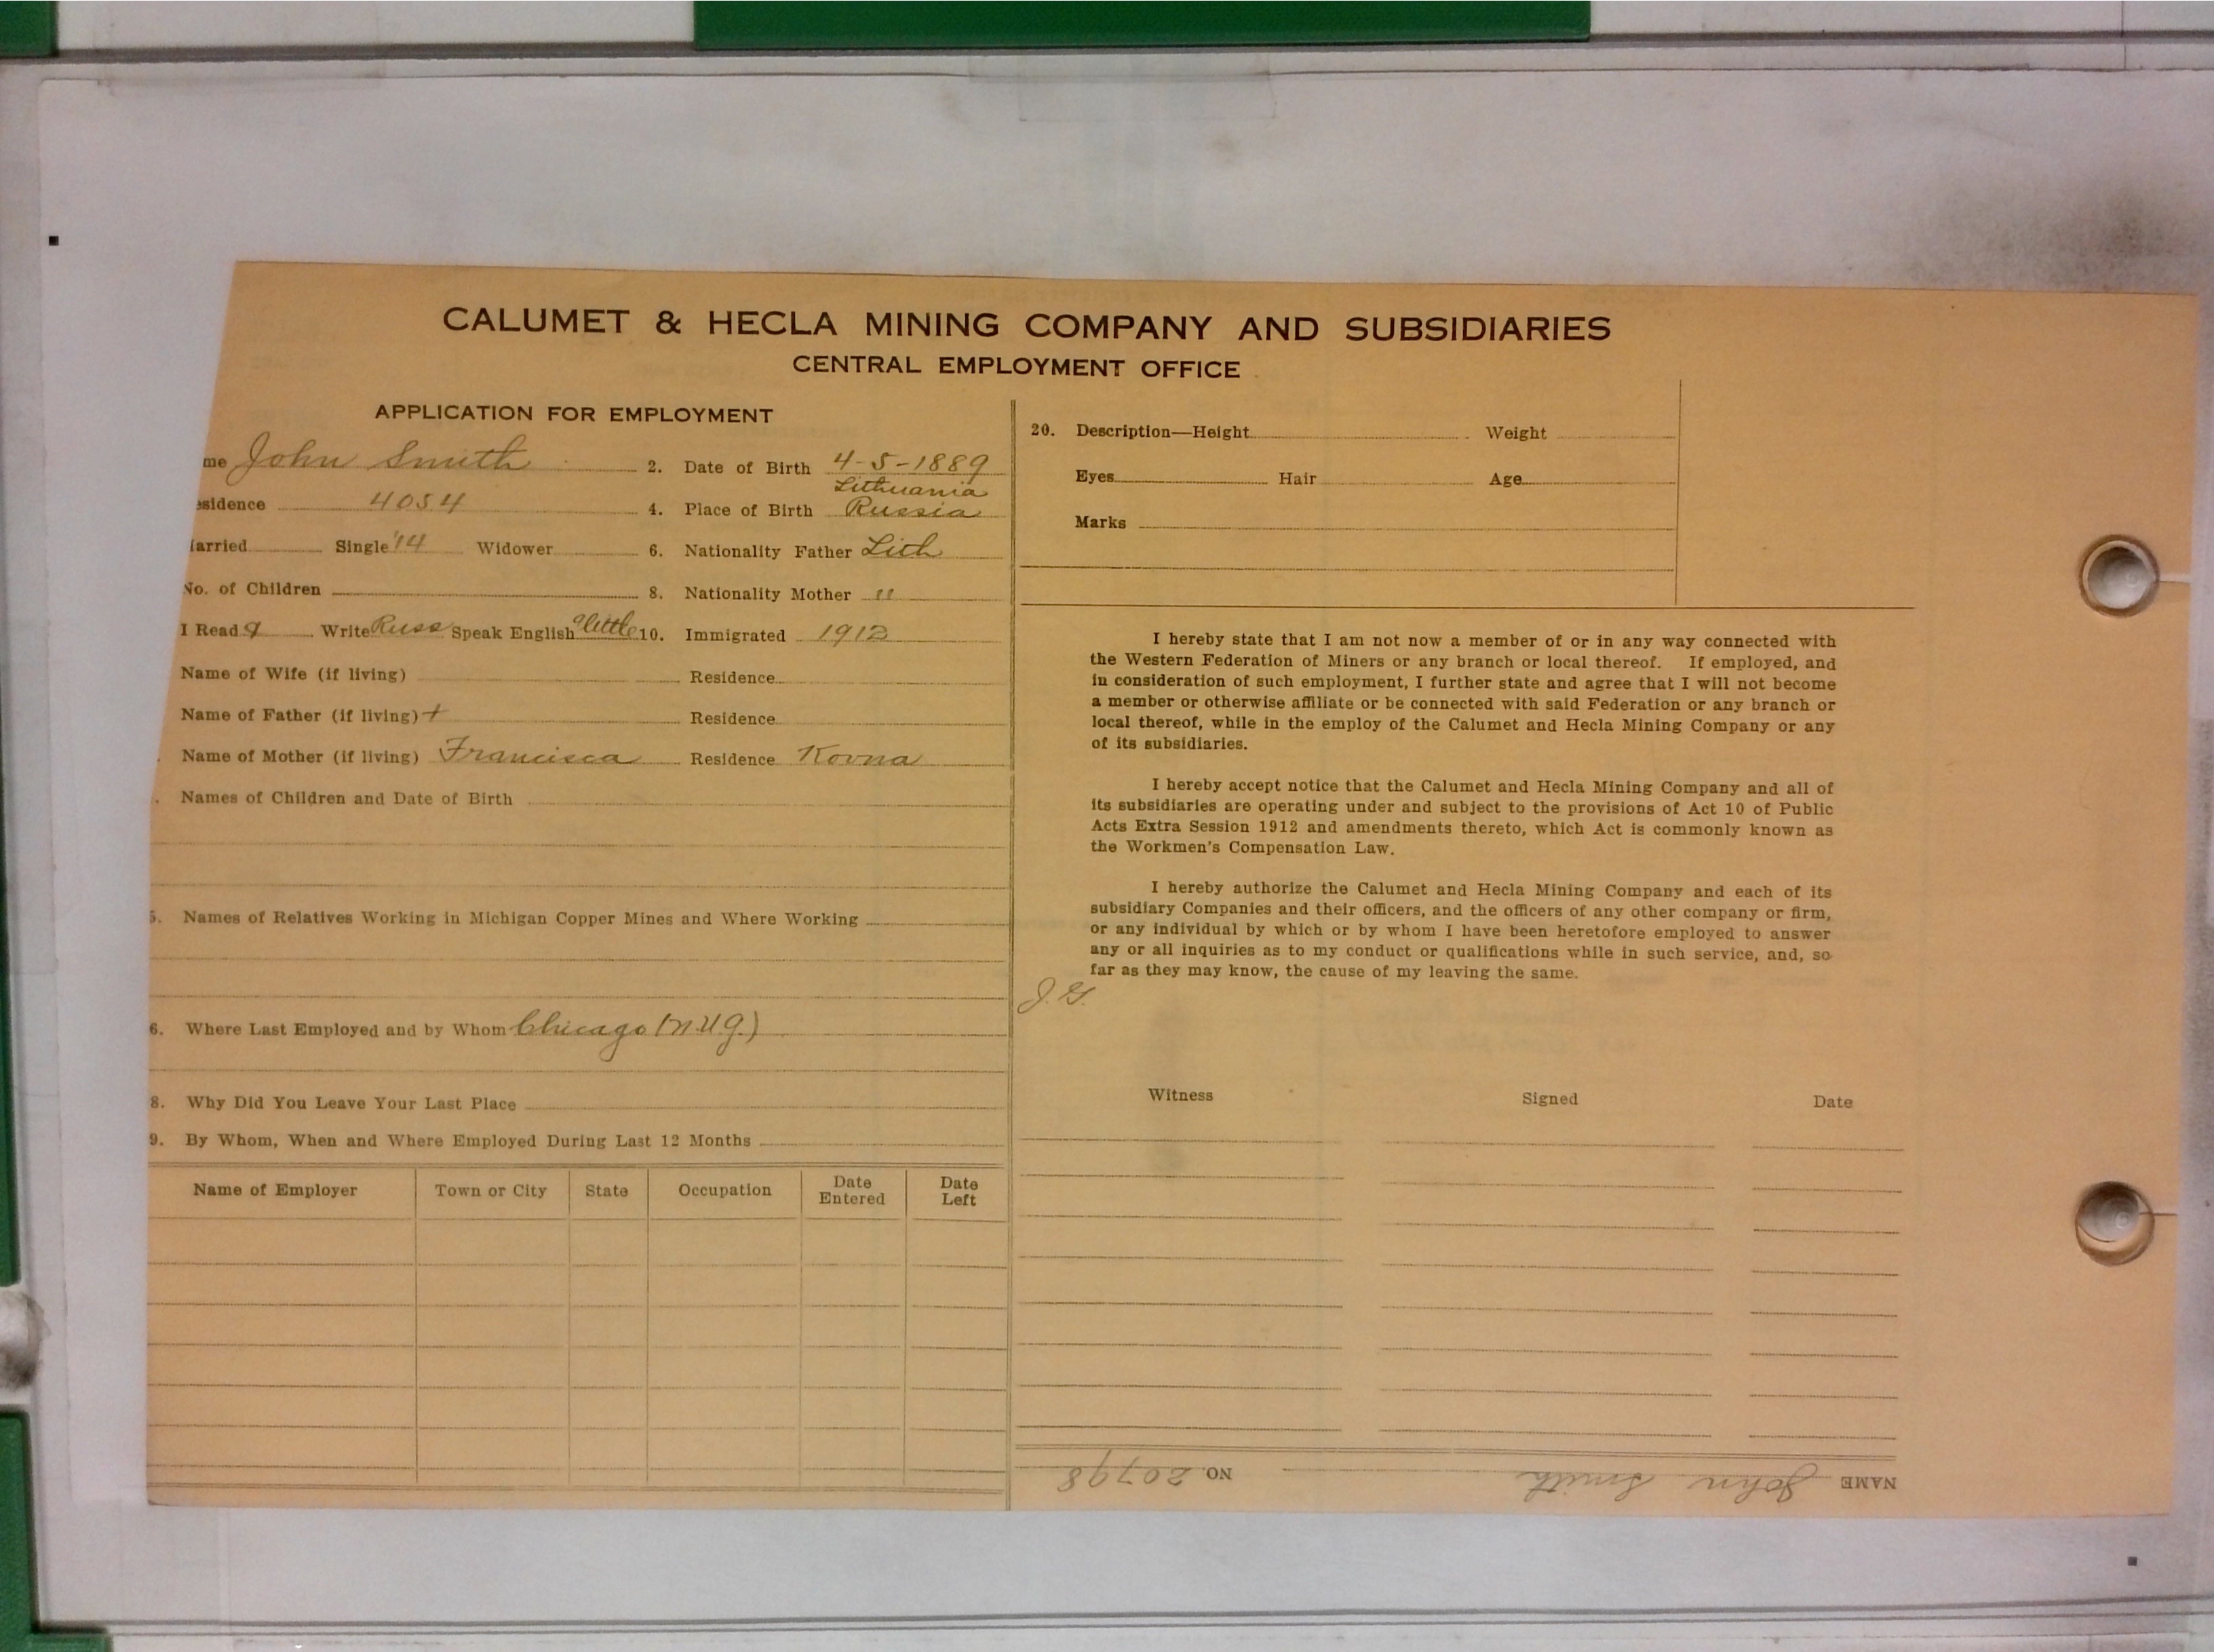 CALUMET & HECLA MINING COMPANY AND SUBSIDIARIES
CENTRAL EMPLOYMENT OFFICE
APPLICATION FOR EMPLOYMENT
me John Smith 2. Date of Birth 4-5-1889
Lithuania
esidence 4054 4. Place of Birth Russia
arried Single '14 Widower 6. Nationality Father Lith
No. of Children 8. Nationality Mother "
I Read & Write Russ Speak English a little 10. Immigrated 1912
Name of Wife (if living) Residence
Name of Father (if living) + Residence
Name of Mother (if living) Francisca Residence Kovna
. Names of Children and Date of Birth
5. Names of Relatives Working in Michigan Copper Mines and Where Working
6. Where Last Employed and by Whom Chicago (N.U.G.)
8. Why Did You Leave Your Last Place
9. By Whom, When and Where Employed During Last 12 Months
Name of Employer Town or City State Occupation Date Entered Date Left
20. Description—Height Weight
Eyes Hair Age
Marks
I hereby state that I am not now a member of or in any way connected with
the Western Federation of Miners or any branch or local thereof. If employed, and
in consideration of such employment, I further state and agree that I will not become
a member or otherwise affiliate or be connected with said Federation or any branch or
local thereof, while in the employ of the Calumet and Hecla Mining Company or any
of its subsidiaries.
I hereby accept notice that the Calumet and Hecla Mining Company and all of
its subsidiaries are operating under and subject to the provisions of Act 10 of Public
Acts Extra Session 1912 and amendments thereto, which Act is commonly known as
the Workmen's Compensation Law.
I hereby authorize the Calumet and Hecla Mining Company and each of its
subsidiary Companies and their officers, and the officers of any other company or firm,
or any individual by which or by whom I have been heretofore employed to answer
any or all inquiries as to my conduct or qualifications while in such service, and, so
far as they may know, the cause of my leaving the same.
Witness Signed Date
NAME John Smith NO. 20798